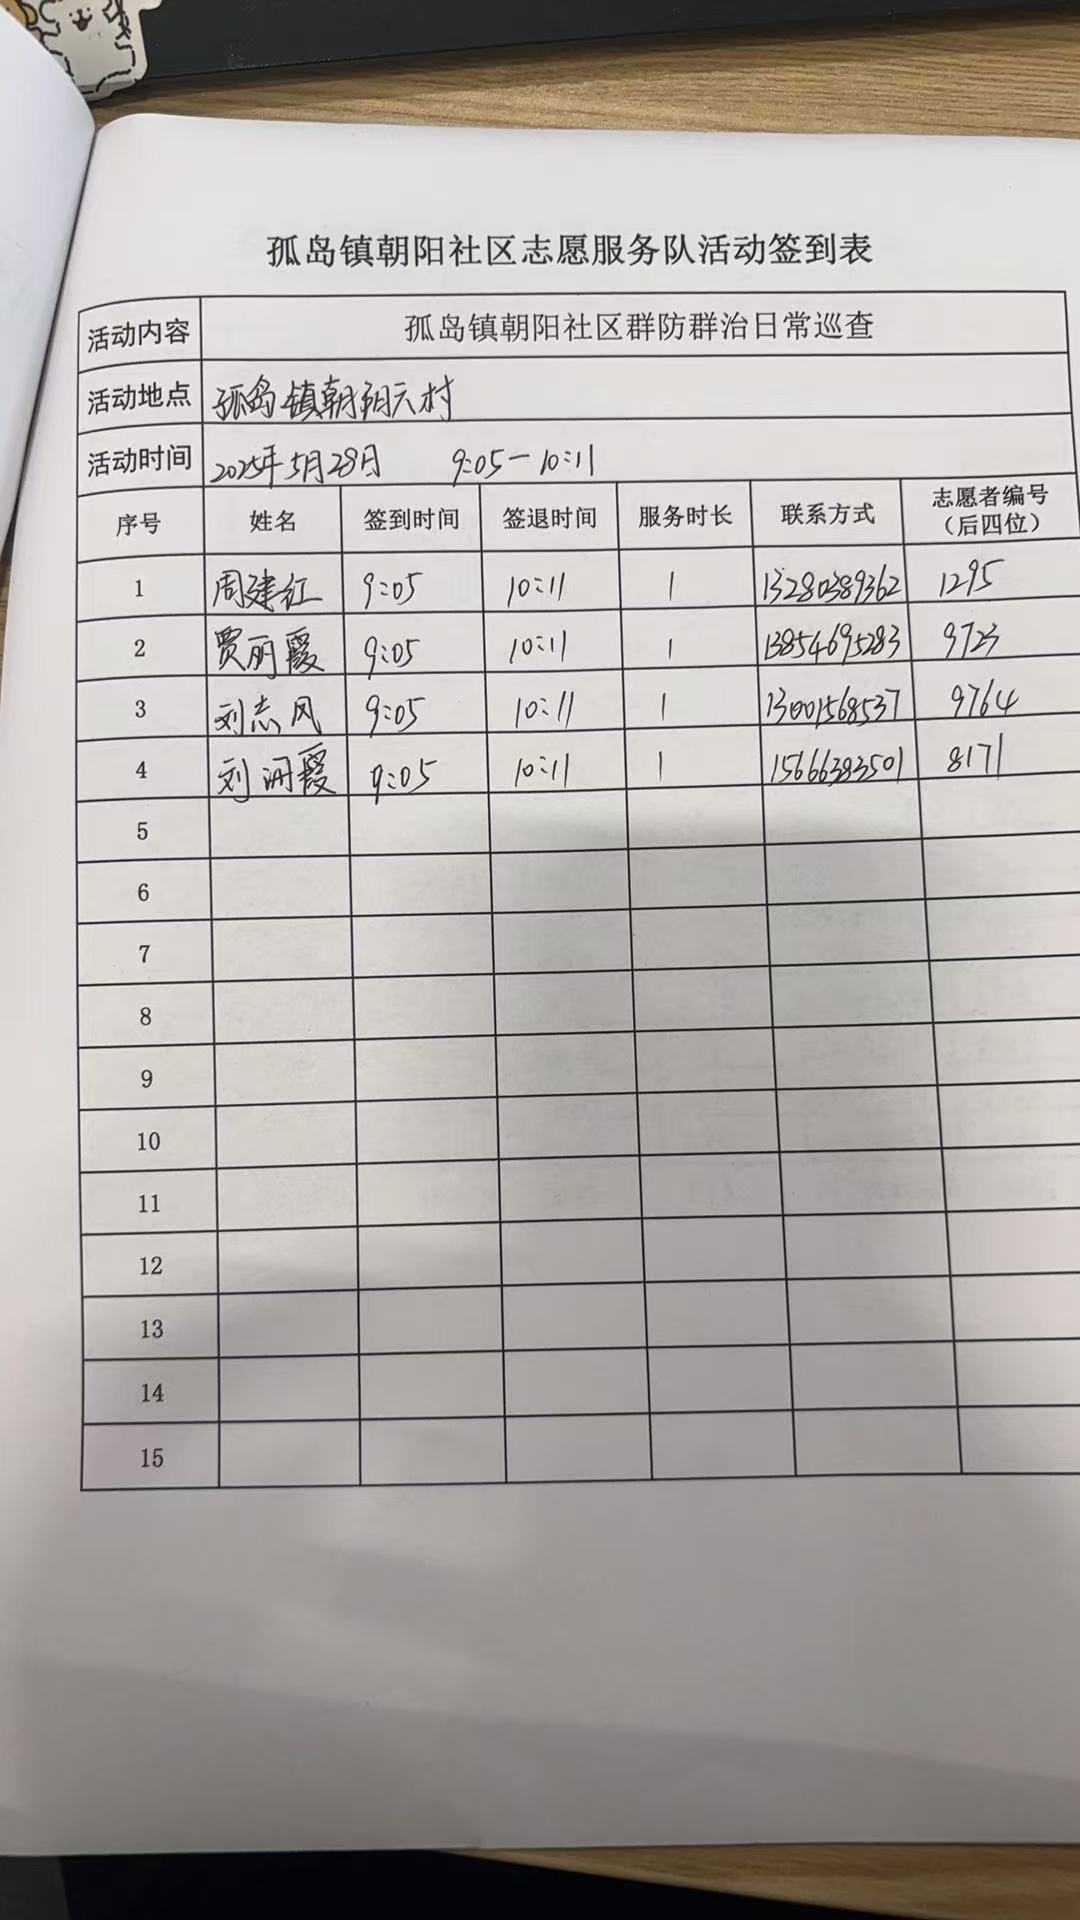 孤岛镇朝阳社区志愿服务队活动签到表
活动内容 孤岛镇朝阳社区群防群治日常巡查
活动地点 孤岛镇朝阳六村
活动时间 2025年5月28日 9:05-10:11
序号 姓名 签到时间 签退时间 服务时长 联系方式 志愿者编号(后四位)
1 周建红 9:05 10:11 1 13280389362 1295
2 贾丽霞 9:05 10:11 1 13854695283 9723
3 刘志凤 9:05 10:11 1 13001568537 9764
4 刘洲霞 9:05 10:11 1 15666383501 8171
5
6
7
8
9
10
11
12
13
14
15